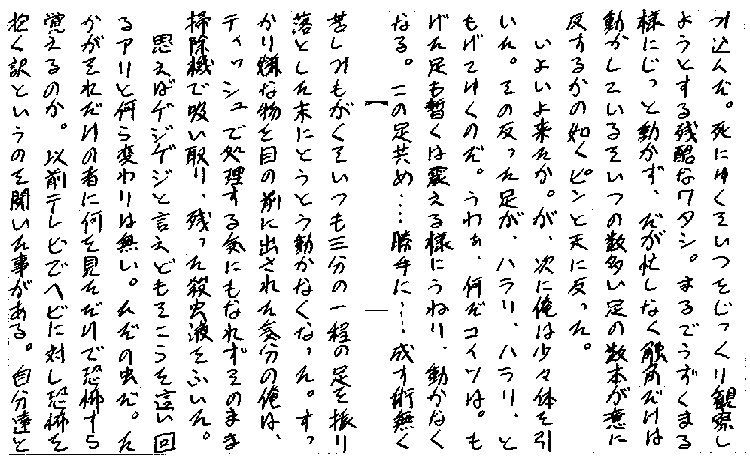 つ込んだ。死にゆくそいつをじっくり観察し
ようとする残酷なワタシ。まるでうずくまる
様にじっと動かず、だが忙しなく触角だけは
動かしているそいつの数多い足の数本が急に
反するかの如くピンと天に反った。
いよいよ来たか。が、次に俺は少々体を引
いた。その反った足が、ハラリ、ハラリ、と
もげてゆくのだ。うわぁ、何だコイツは。も
げた足も暫くは震える様にうねり、動かなく
なる。この足共め…勝手に…成す術無く
苦しみもがくそいつも三分の一程の足を振り
落とした末にとうとう動かなくなった。すっ
かり嫌な物を目の前に出された気分の俺は、
ティッシュで処理する気にもなれずそのまま
掃除機で吸い取り、残った殺虫液をふいた。
思えばゲジゲジと言えどもそこらを這い回
るアリと何ら変わりは無い。ただの虫だ。た
かがそれだけの者に何を見ただけで恐怖すら
覚えるのか。以前テレビでヘビに対し恐怖を
抱く訳というのを聞いた事がある。自分達と